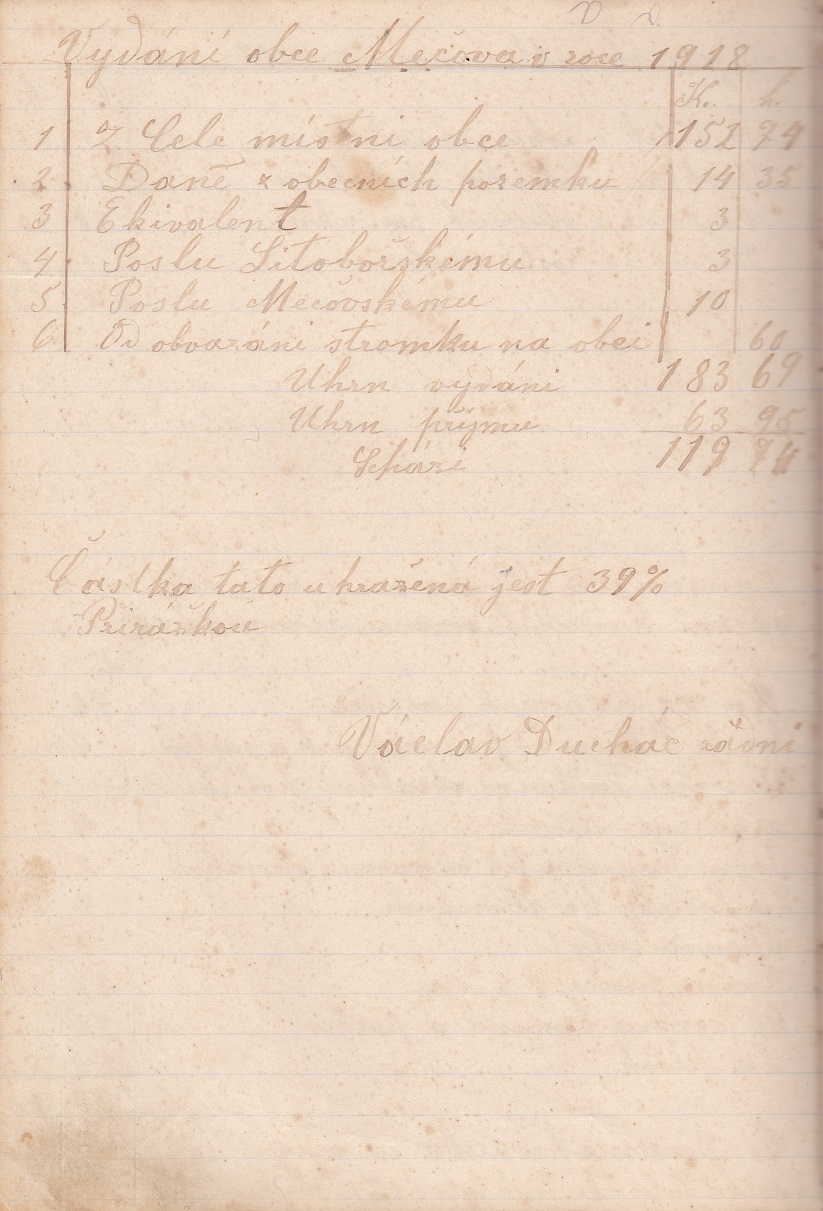 Vydání obce Mečova v roce 1918
K. h.
1 z Cele místni obce 152 74
2 Daně z obecních pozemku 14 35
3 Ekivalent 3
4 Poslu Litobořskému 3
5 Poslu Mečovskému 10
6 Od obvazáni stromku na obci 60
Uhrn vydáni 183 69
Uhrn přijmu 63 95
Scházi 119 74
Částka tato uhražená jest 39%
Přirážkou
Václav Ducháč